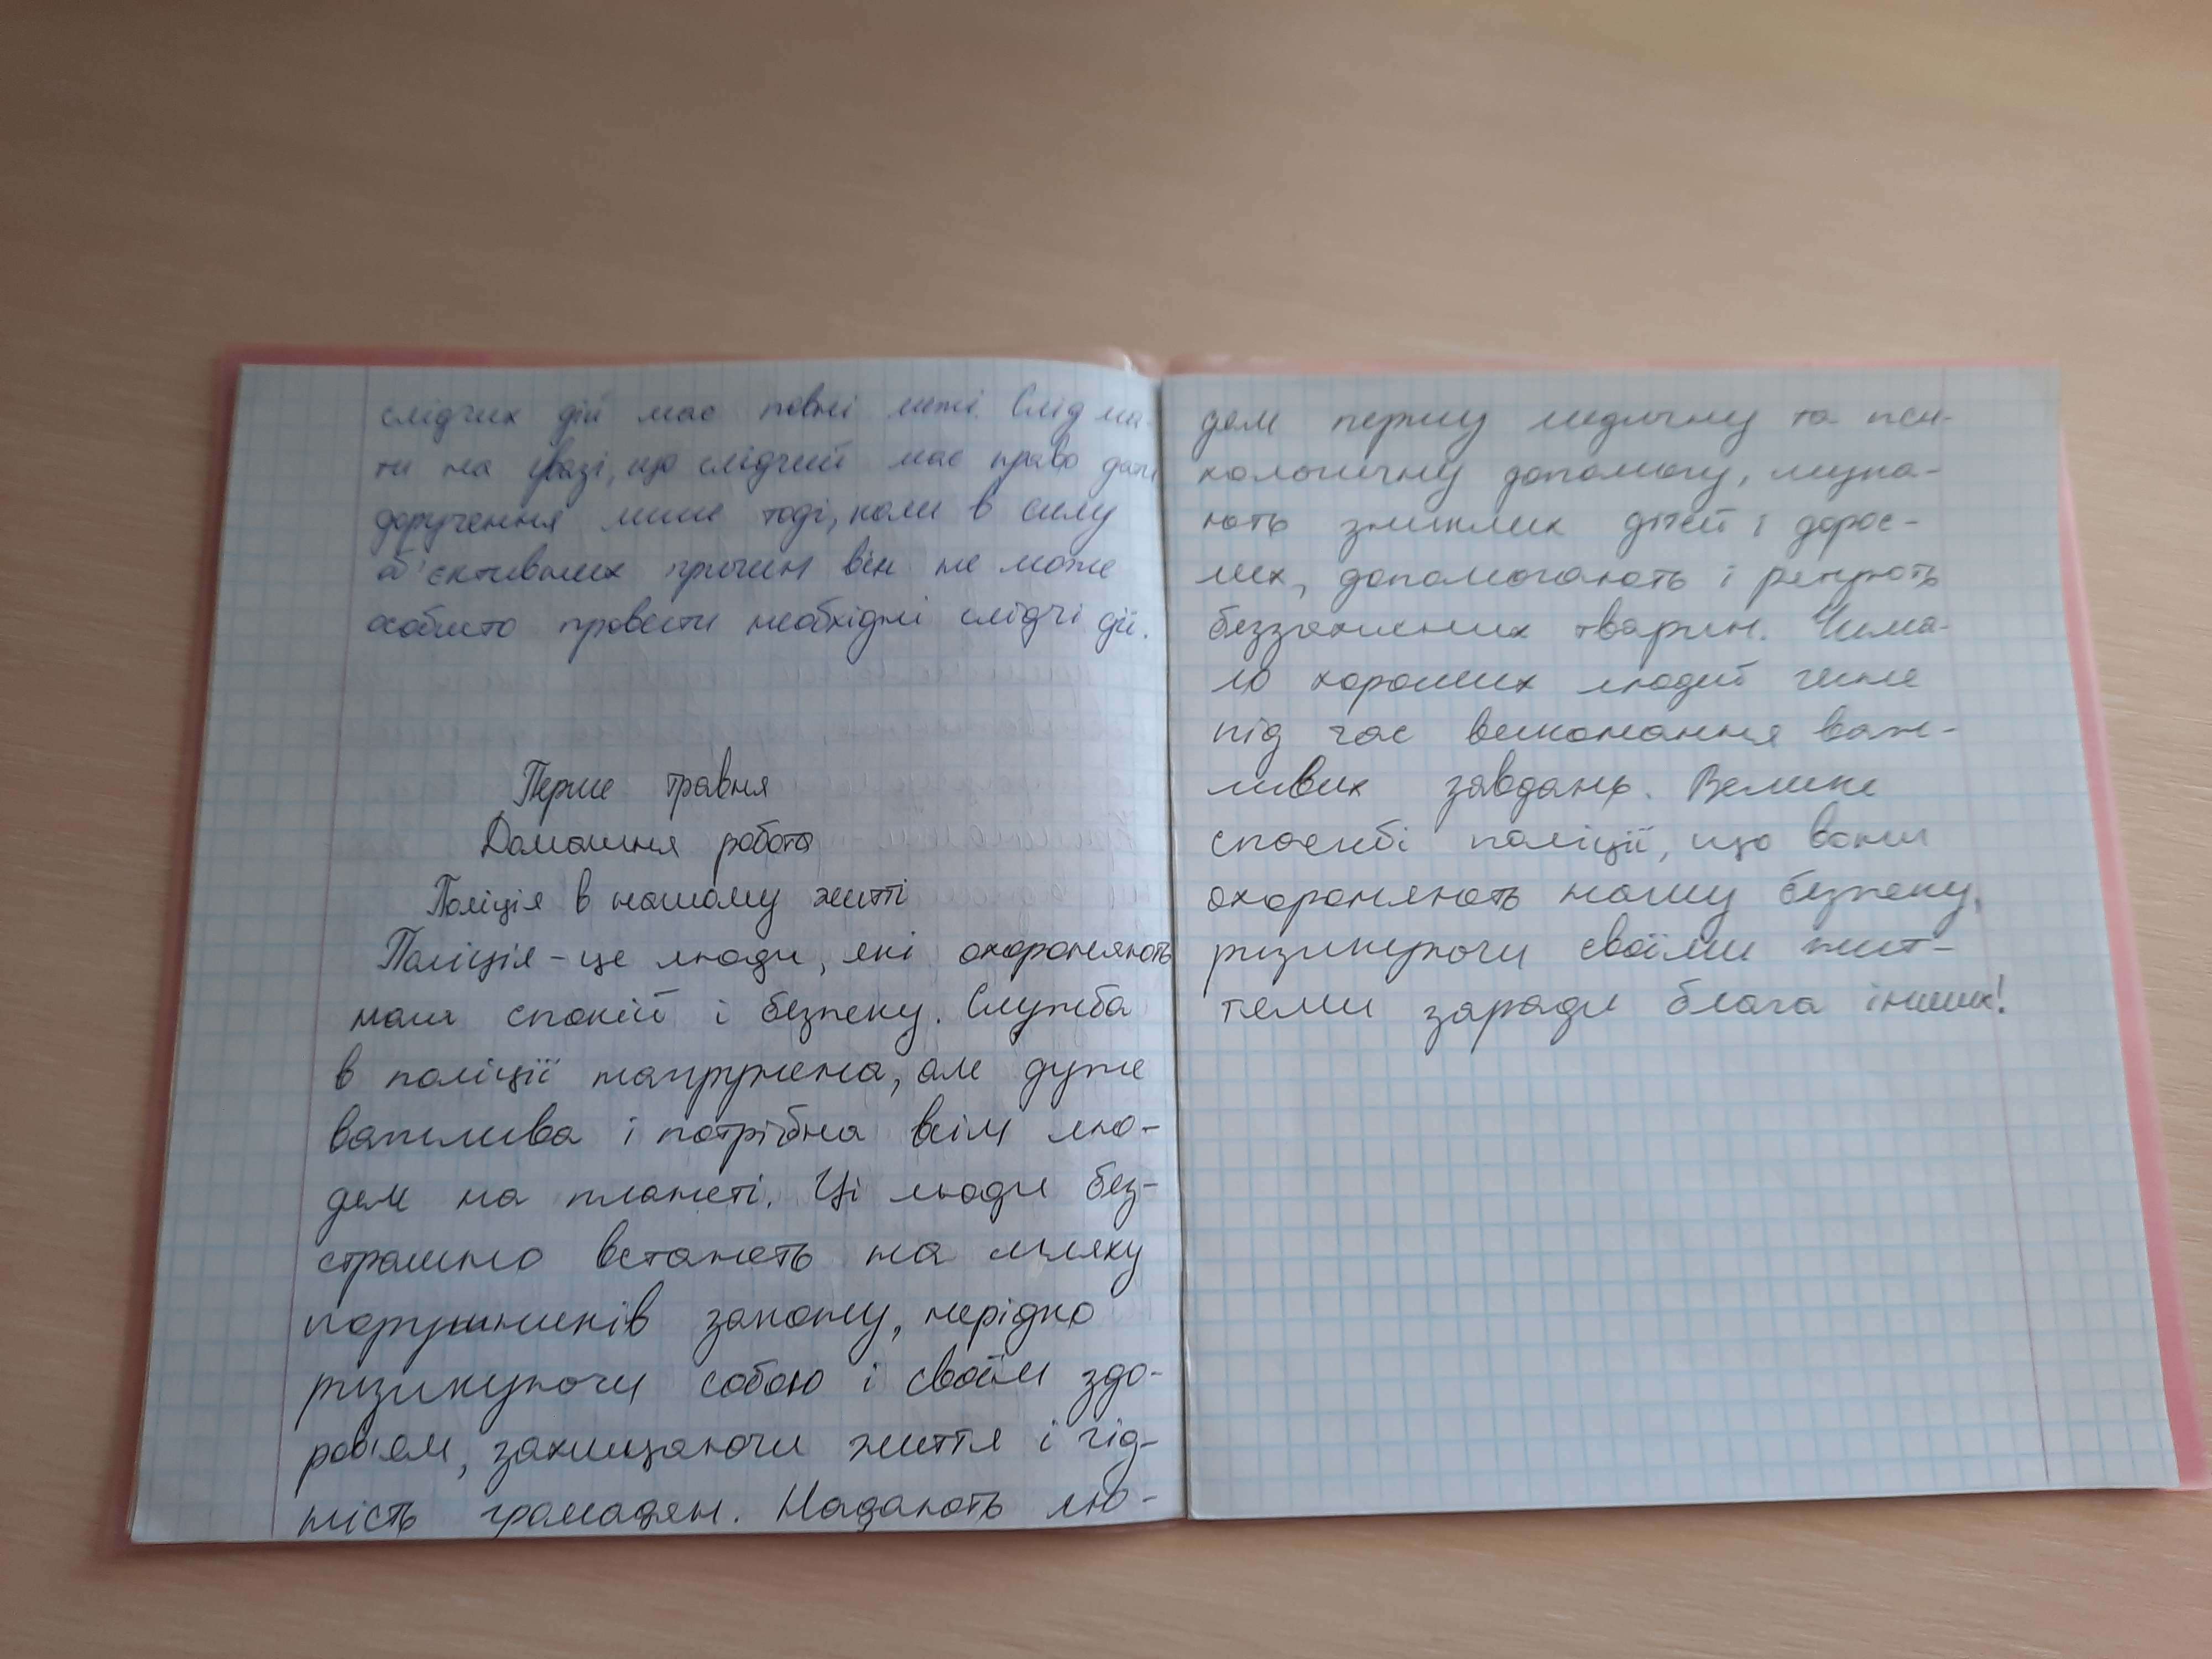 слідчих дій має певні межі. Слід ма-
ти на увазі, що слідчий має право дати
доручення лише тоді, коли в силу
об'єктивних причин він не може
особисто провести необхідні слідчі дії.
Перше травня
Домашня робота
Поліція в нашому житті
Поліція – це люди, які охороняють
наш спокій і безпеку. Служба
в поліції напружена, але дуже
важлива і потрібна всім лю-
дем на планеті. Ці люди без-
страшно встають на шляху
порушників закону, нерідко
ризикуючи собою і своїм здо-
ров'ям, захищаючи життя і гід-
ність громадян. Надають лю-
дем першу медичну та пси-
хологічну допомогу, шука-
ють зниклих дітей і дорос-
лих, допомагають і рятують
беззахисних тварин. Чима-
ло хороших людей гине
під час виконання важ-
ливих завдань. Велике
спасибі поліції, що вони
охороняють нашу безпеку,
ризикуючи своїми жит-
тями заради блага інших!